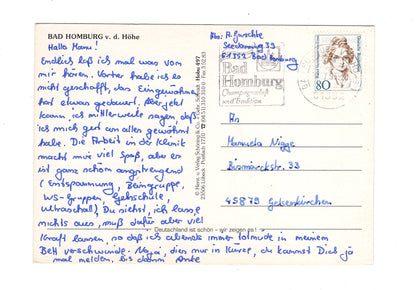 BAD HOMBURG v. d. Höhe
Hallo Manu!
Endlich laß ich mal was von
mir hören. Vorher habe ich es
nicht geschafft, das Eingewöhnen
hat etwas gedauert. Aber jetzt
kann ich mittlerweile sagen, daß
ich mich gut an alles gewöhnt
habe. Die Arbeit in der Klinik
macht mir viel Spaß, aber es
ist ganz schön anstrengend
(Entspannung, Beingruppe,
WS-Gruppen, Gehschule,
Ultraschall). Du siehst, ich lasse
nichts aus, muß dafür aber viel
Kraft lassen, so daß ich abends immer totmüde in meinem
Bett verschwinde. Naja, dies nur in Kürze, du kannst Dich ja
mal melden, bis dahin Anke
© Horst v. Verlag Schöning & Co. + Gebr. Schmidt · Holzu 697
23006 Lübeck Postfach 1725
Deutschland ist schön – wir zeigen es!
Abs: A. Garschke
Seedammweg 39
61352 Bad Homburg
Bad
Homburg
Champagnerluft
und Tradition
61352
80
Deutsche Bundespost
Manuela Nigge
Bismarckstr. 33
45879 Gelsenkirchen